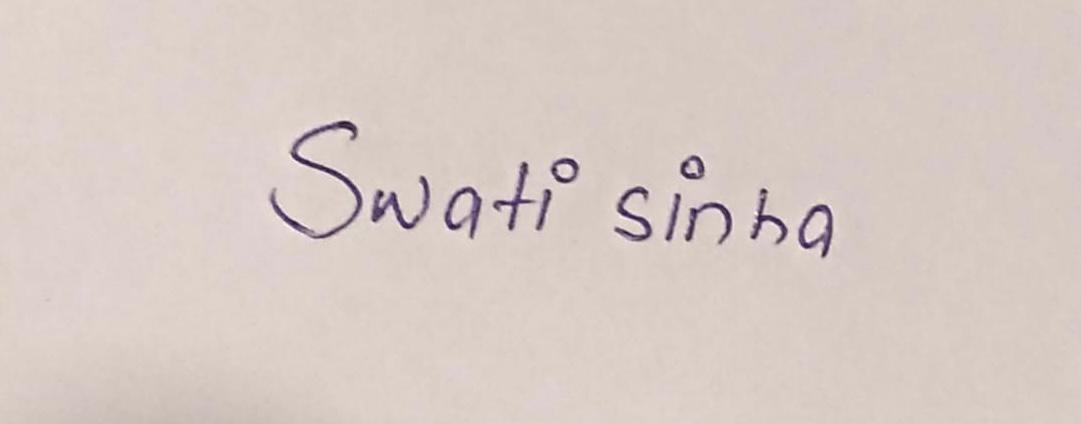 Swati sinha